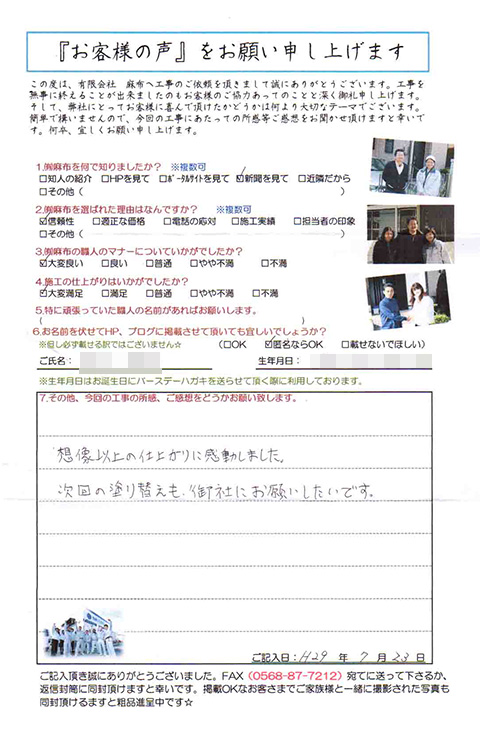 『お客様の声』をお願い申し上げます
この度は、有限会社 麻布へ工事のご依頼を頂きまして誠にありがとうございます。工事を
無事に終えることが出来ましたのもお客様のご協力あってのことと深く御礼申し上げます。
そして、弊社にとってお客様に喜んで頂けたかどうかは何より大切なテーマでございます。
簡単で構いませんので、今回の工事にあたっての所感等ご感想をお聞かせ頂けますと幸いで
す。何卒、宜しくお願い申し上げます。
1.㈲麻布を何で知りましたか? ※複数可
□知人の紹介 □HPを見て □ﾎﾟｰﾀﾙｻｲﾄを見て ☑新聞を見て □近隣だから
□その他( )
2.㈲麻布を選ばれた理由はなんですか? ※複数可
☑信頼性 □適正な価格 □電話の応対 □施工実績 □担当者の印象
□その他( )
3.㈲麻布の職人のマナーについていかがでしたか?
☑大変良い □良い □普通 □やや不満 □不満
4.施工の仕上がりはいかがでしたか?
☑大変満足 □満足 □普通 □やや不満 □不満
5.特に頑張っていた職人の名前があればお願いします。
( )
6.お名前を伏せてHP、ブログに掲載させて頂いても宜しいでしょうか?
※但し必ず載せる訳ではございません☆ (□OK ☑匿名ならOK □載せないでほしい)
ご氏名: 生年月日:
※生年月日はお誕生日にバースデーハガキを送らせて頂く際に利用しております。
7.その他、今回の工事の所感、ご感想をどうかお願い致します。
想像以上の仕上がりに感動しました。
次回の塗り替えも、御社にお願いしたいです。
ご記入日: H29 年 7 月 23 日
ご記入頂き誠にありがとうございました。FAX(0568-87-7212)宛てに送って下さるか、
返信封筒に同封頂けますと幸いです。掲載OKなお客さまでご家族様と一緒に撮影された写真も
同封頂けるますと粗品進呈中です☆